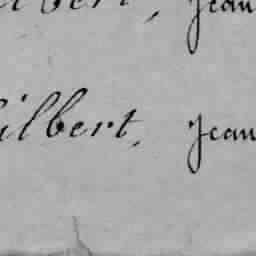 ilbert, Jean
ilbert, Jean